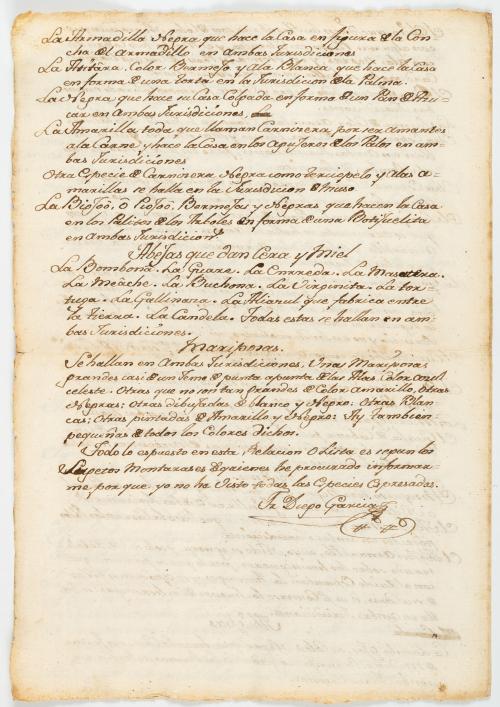 La Armadilla Negra que hace la Casa en figura de la Con
cha de el Armadillo en ambas Jurisdiciones
La Color Bermejo y Ala Blanca, que hace la Casa
en forma de una torta en la Jurisdicion de la Palma.
La Negra que hace su Casa Colgada en forma de un Pan de Azu
car en Ambas Jurisdiciones,
La Amarilla toda que llaman Carnisera, por ser amantes
a la Carne y hace la Casa en los Agujeros de los Palos en am
bas Jurisdiciones
Otra Especie de Carnisera Negra como terciopelo y Alas a
marillas se halla en la Jurisdicion de Muso
La Biojoó, ô Piojoo, Bermejas y Negras que hacen la Casa
en los Palitos de los Arboles en forma de una Botijuelita
en Ambas Jurisdicions
Abejas que dan Cera y Miel
La Bombona. La Guare. La Enrreda. La
La Meache. La Buchona. La Virginita. La tor-
tuga. La Gallinasa. La que fabrica entre
la tierra. La Candela. Todas estas se hallan en am-
bas Jurisdiciones.
Mariposas.
Se hallan en Ambas Jurisdiciones, Unas Mariposas
grandes casi de un Jeme de punta apunta de las Alas Color azul
celeste. Otras que no son tan grandes de Color amarillo, Otras
Negras; Otras de Blanco y Negro: Otras Blan
cas; Otras pintadas de Amarillo y Negro: Ay tambien
pequeñas de todos los Colores dichos.
Todo lo espuesto en esta Relacion o Lista es segun los
Sugetos Montarases de quienes he procurado informar-
me por que yo no ha Visto todas las Especies Expresadas.
Fr. Diego Garcia